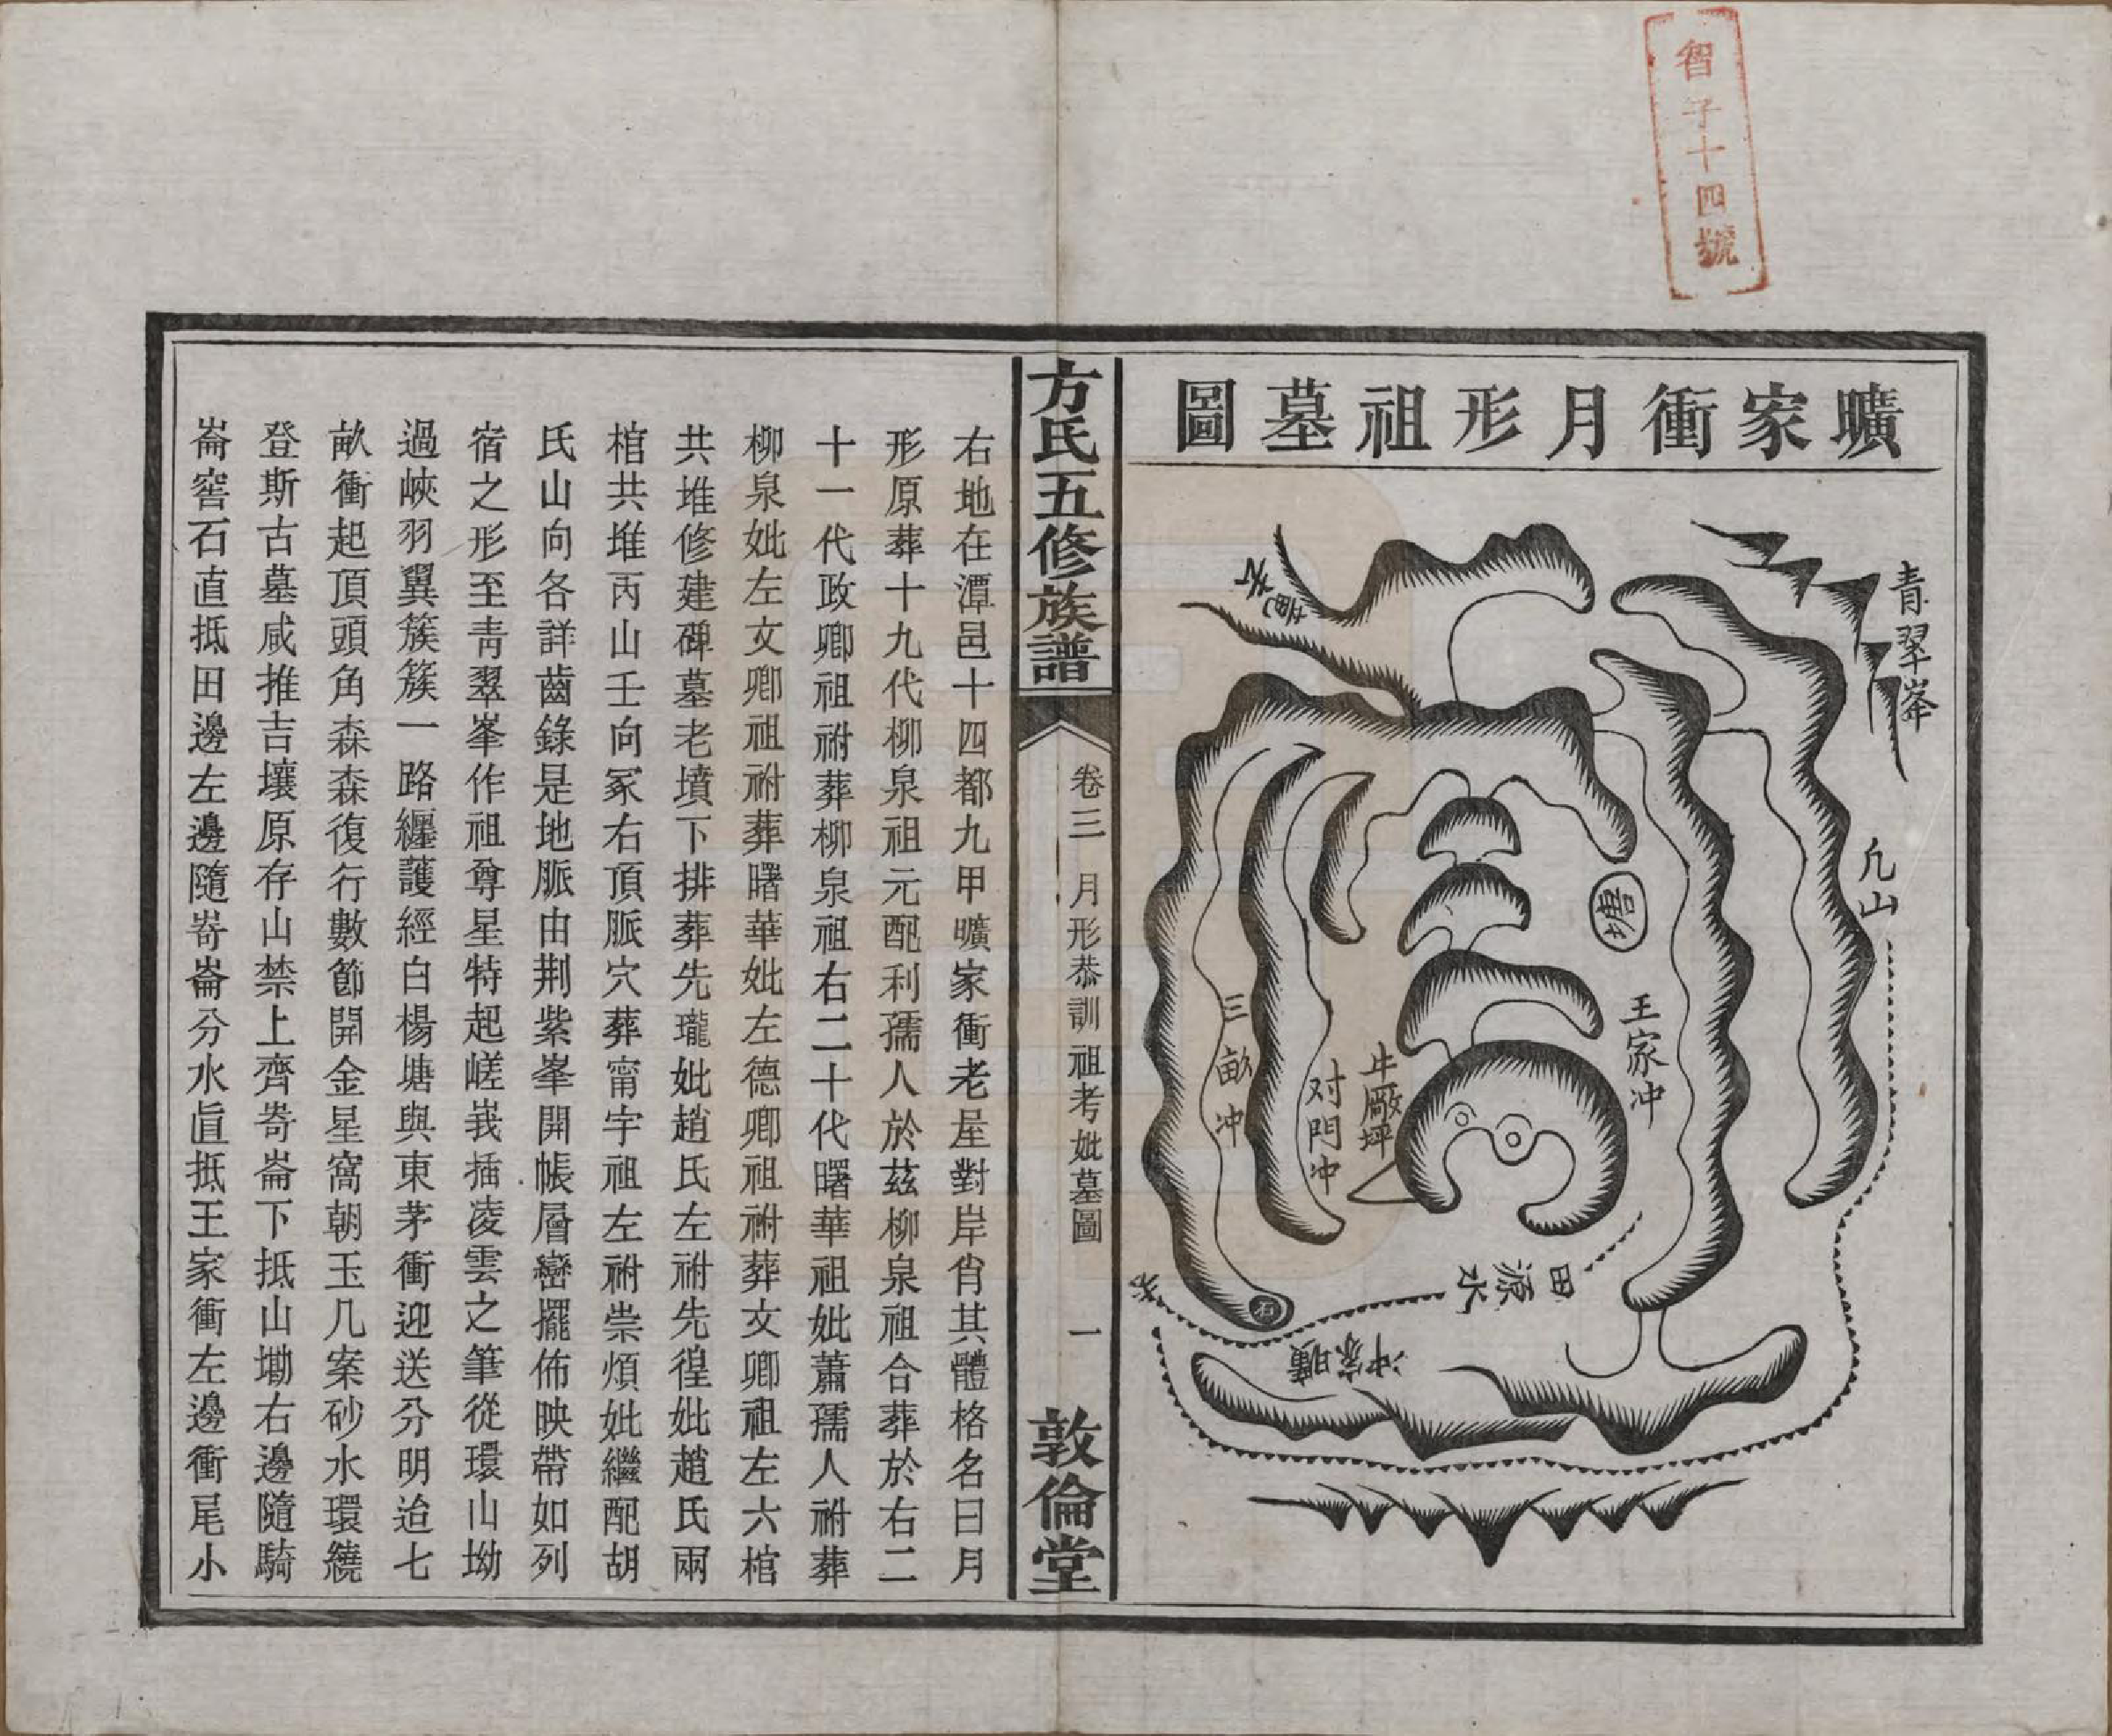 智字十四號
曠家衝月形祖墓圖
青翠峯
凢山
塘
王家冲
牛廠坪
对門冲
三畝冲
石
田源水
曠家冲
方氏五修族譜
卷三 月形恭訓祖考妣墓圖 一
敦倫堂
右地在潭邑十四都九甲曠家衝老屋對岸肖其體格名曰月
形原葬十九代柳泉祖元配利孺人於茲柳泉祖合葬於右二
十一代政卿祖祔葬柳泉祖右二十代曙華祖妣蕭孺人祔葬
柳泉妣左文卿祖祔葬曙華妣左德卿祖祔葬文卿祖左六棺
共堆修建碑墓老墳下排葬先瓏妣趙氏左祔先徨妣趙氏兩
棺共堆丙山壬向冢右頂脈穴葬甯宇祖左祔崇煩妣繼配胡
氏山向各詳齒錄是地脈由荆紫峯開帳層巒擺佈映帶如列
宿之形至青翠峯作祖尊星特起嵯峩插凌雲之筆從環山坳
過峽羽翼簇簇一路纒護經白楊塘與東茅衝迎送分明迨七
畝衝起頂頭角森森復行數節開金星窩朝玉几案砂水環繞
登斯古墓咸推吉壤原存山禁上齊嵜崙下抵山墈右邊隨騎
崙窖石直抵田邊左邊隨嵜崙分水直抵王家衝左邊衝尾小